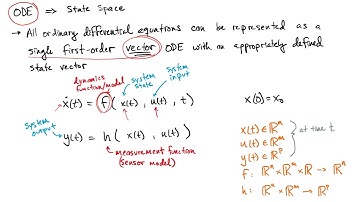 ODE ⇒ State Space
→ All ordinary differential equations can be represented as a
single first-order vector ODE with an appropriately defined
state vector
dynamics function/model
system state
system input
ẋ(t) = f( x(t), u(t), t)
x(0) = x₀
system output
y(t) = h( x(t), u(t))
measurement function
(sensor model)
x(t) ∈ ℝⁿ
u(t) ∈ ℝᵐ
y(t) ∈ ℝᵖ
at time t
f: ℝⁿ × ℝᵐ × ℝ → ℝⁿ
h: ℝⁿ × ℝᵐ → ℝᵖ